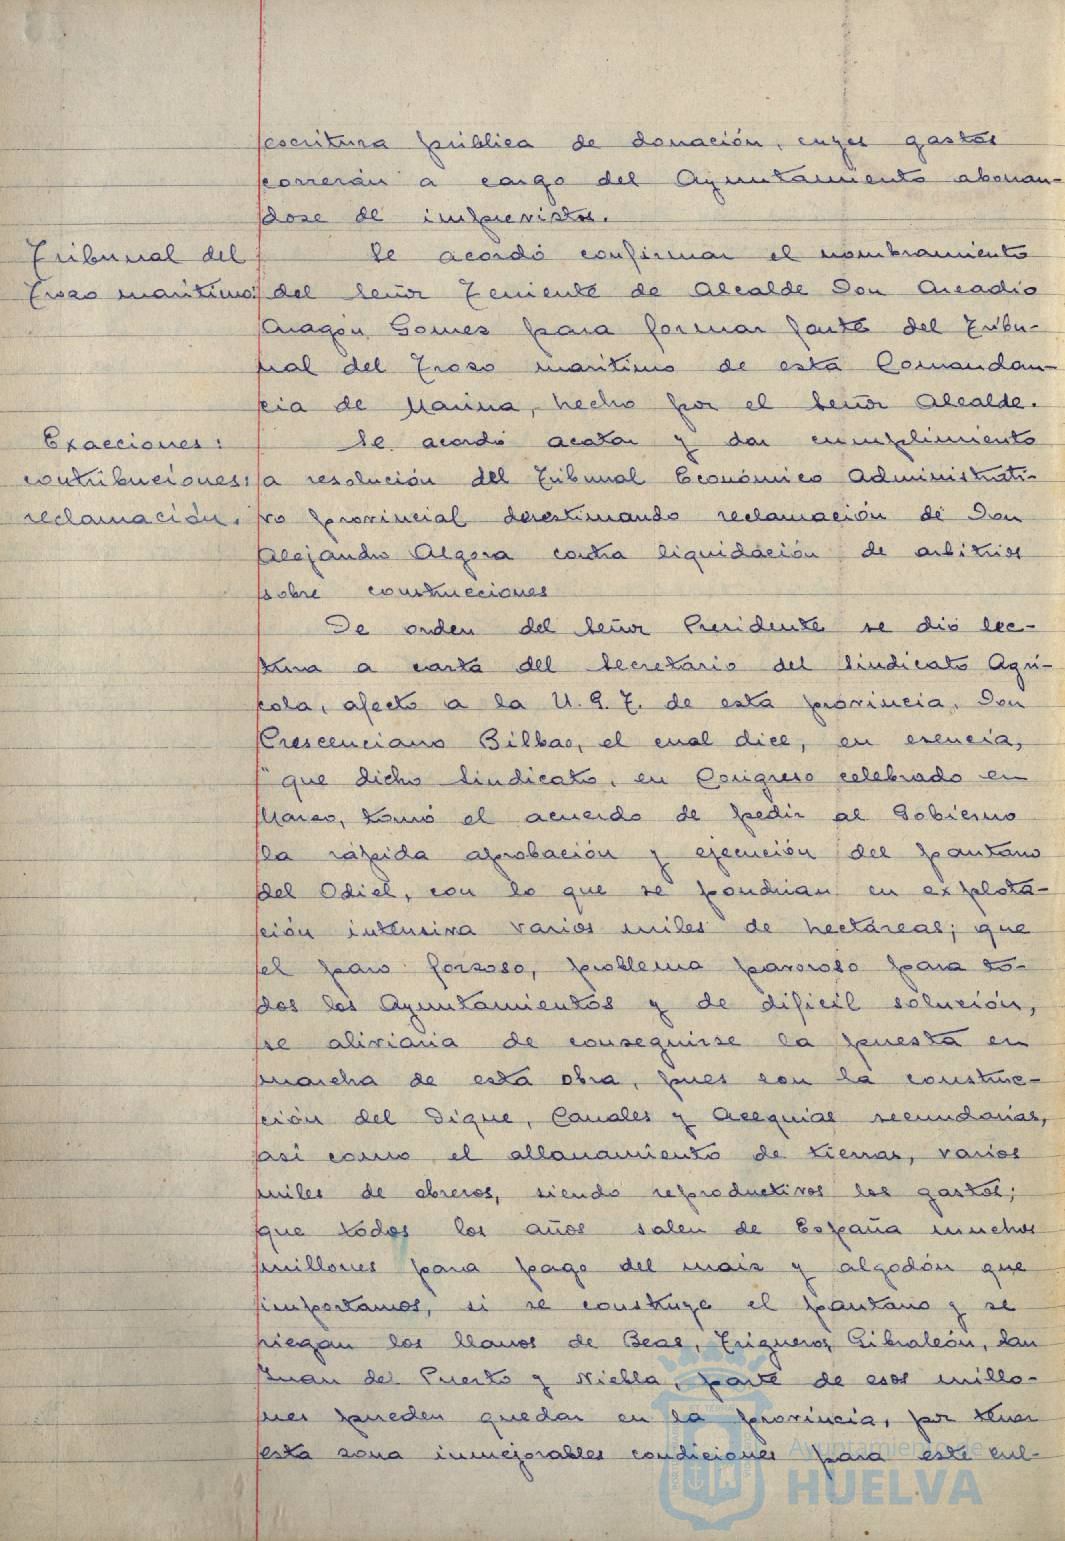 escritura pública de donación, cuyos gastos
correrán a cargo del Ayuntamiento abonan-
dose de imprevistos.
Tribunal del
Trozo marítimo:
Se acordó confirmar el nombramiento
del Señor Teniente de Alcalde Don Arcadio
Aragón Gomez para formar parte del Tribu-
nal del Trozo marítimo de esta Comandan-
cia de Marina, hecho por el Señor Alcalde.
Exacciones:
contribuciones:
reclamación.
Se acordó acatar y dar cumplimiento
a resolución del Tribunal Económico Administrati-
vo provincial desestimando reclamación de Don
Alejandro Algora contra liquidación de arbitrios
sobre construcciones
De orden del Señor Presidente se dió lec-
tura a carta del Secretario del Sindicato Agrí-
cola, afecto a la U.G.T. de esta provincia, Don
Crescenciano Bilbao, el cual dice, en esencia,
"que dicho Sindicato, en Congreso celebrado en
Marzo, tomó el acuerdo de pedir al Gobierno
la rápida aprobación y ejecución del pantano
del Odiel, con lo que se pondrian en explota-
ción intensiva varios miles de hectáreas; que
el paro forzoso, problema pavoroso para to-
dos los Ayuntamientos y de dificil solución,
se aliviaria de conseguirse la puesta en
marcha de esta obra, pues son la construc-
ción del Dique, Canales y Acequias secundarias,
asi como el allanamiento de tierras, varios
miles de obreros, siendo reproductivos los gastos;
que todos los años salen de España muchos
millones para pago del maiz y algodón que
importamos, si se construye el pantano y se
riegan los llanos de Beas, Trigueros, Gibraleón, San
Juan del Puerto y Niebla, parte de esos millo-
nes pueden quedar en la provincia, por tener
esta zona inmejorables condiciones para este cul-
Ayuntamiento de
HUELVA